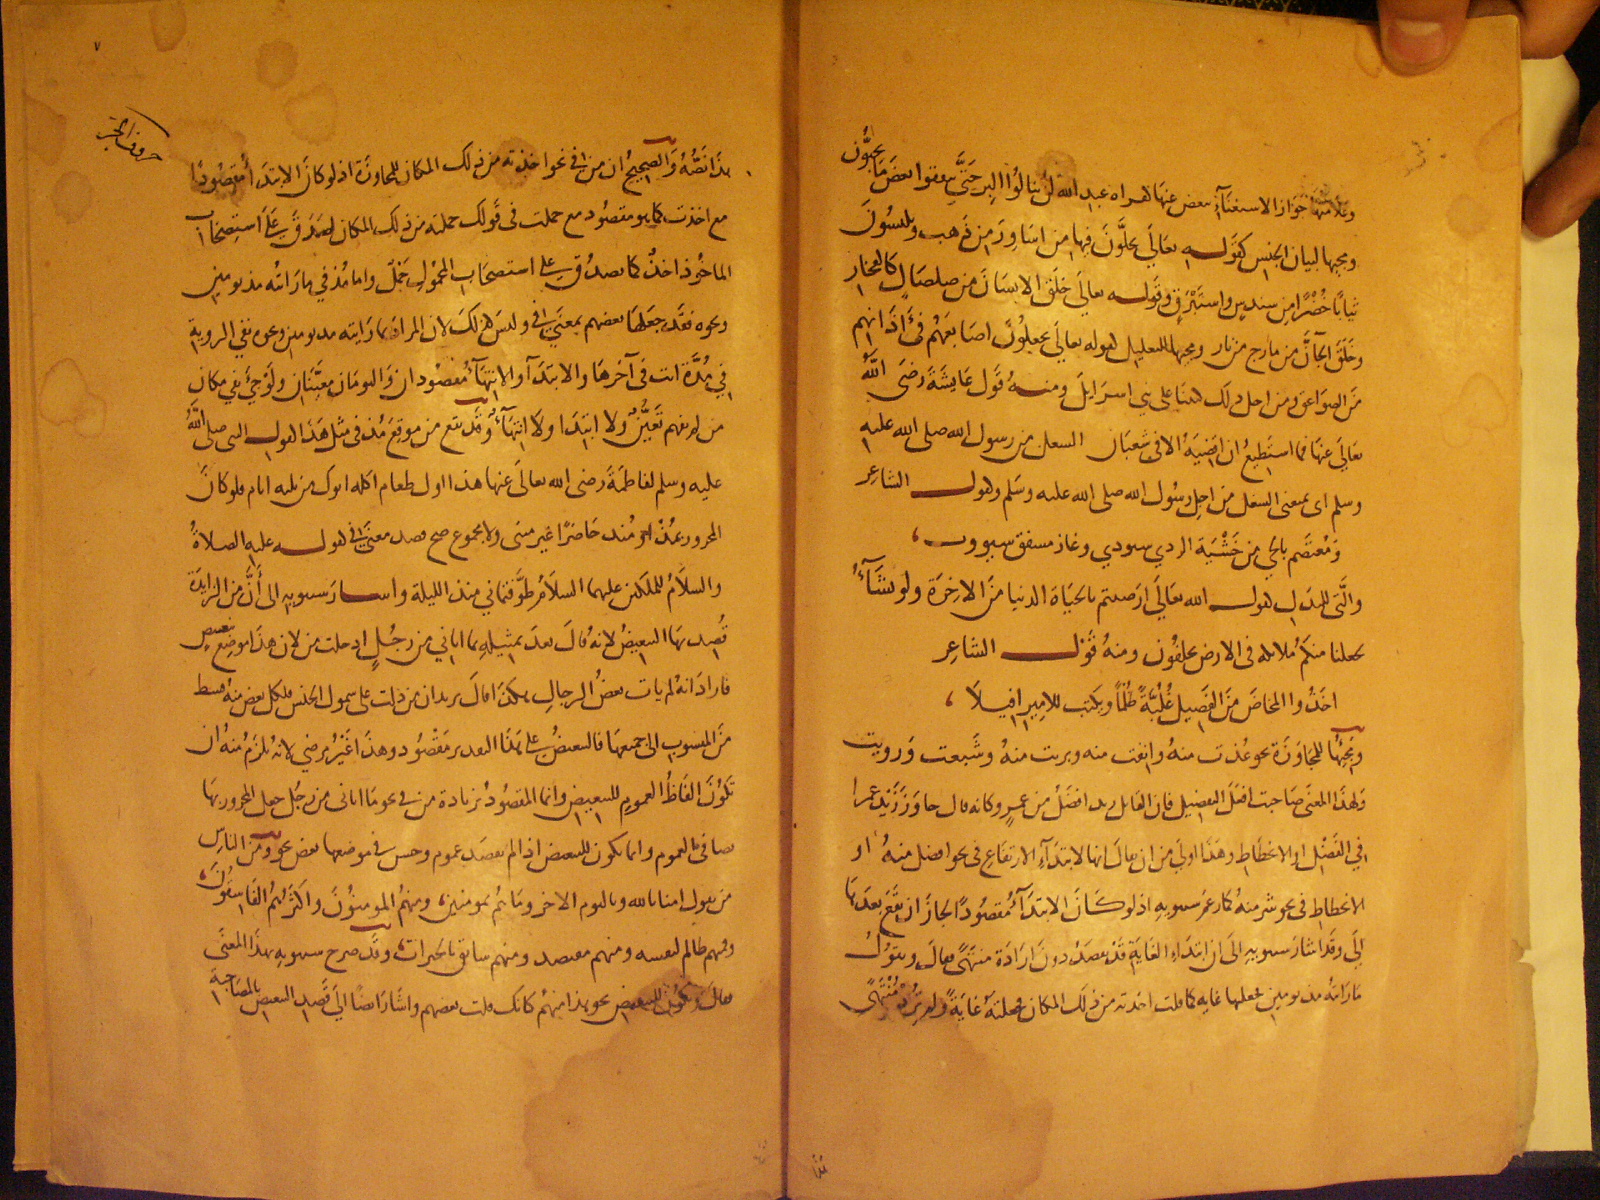 وعلامتها جواز الاستغناء ببعض عنها لقراءة عبد الله لن تنالوا البر حتى تنفقوا بعض ما تحبون
ومجيها لبيان الجنس كقوله تعالى يحلون فيها من اساور من ذهب ويلبسون
ثيابا خضرا من سندس واستبرق وقوله تعالى خلق الانسان من صلصال كالفخار
وخلق الجان من مارج من نار ومجيها للتعليل لقوله تعالى يجعلون اصابعهم في آذانهم
من الصواعق ومن اجل ذلك كتبنا على بني اسرايل ومنه قول عايشة رضى الله
تعالى عنها فما استطيع ان اقضيه الا في شعبان الشغل من رسول الله صلى الله عليه
وسلم اى بمعنى الشغل من اجل رسول الله صلى الله عليه وسلم وقول الشاعر
ومعتصم بالحي من خشية الردي سيردي وغاز مشفق سيؤوب
والتى للبدل لقول الله تعالى ارضيتم بالحياة الدنيا من الاخرة ولو نشآء
لجعلنا منكم ملائكة فى الارض يخلفون ومنه قول الشاعر
اخذوا المخاض من الفصيل غلبة ظلما ويكتب للامير افيلا
ومجيها للمجاوزة نحو عذت منه وانفت منه وبريت منه وشبعت ورويت
ولهذا المعنى صاحبت افعل التفضيل فان القايل زيد افضل من عمرو كانه قال جاوز زيد عمرا
في الفضل او الانحطاط وهذا اولى من ان يقال انها لابتداء الارتفاع في نحو افضل منه او
الانحطاط في نحو شر منه كما زعم سيبويه اذ لو كان الابتدآء مقصودا لجاز ان يقع بعدها
الى وقد اشار سيبويه الى ان ابتداء الغاية قد يقصد دون ارادة منتهى فقال وتقول
ما رايته مذ يومين فجعلتها غاية كما قلت اخذته من ذلك المكان فجعلته غاية ولم ترد منتهى
٧
حروف الجر
هذا نصه والصحيح ان من في نحو اخذته من ذلك المكان للمجاوزة اذ لو كان الابتدا مقصودا
مع اخذت كما هو مقصود مع حملت فى قولك حملته من ذلك المكان لصدق على استصحاب
الماخوذ اخذ كما يصدق على استصحاب المحمول حمل واما مذ في ما رايته مذ يومين
ونحوه فقد جعلها بعضهم بمعنى في وليس كذلك لان المراد بما رايته مذ يومين ونحوه نفي الروية
في مدة انت في آخرها والابتدآ والانتهآء مقصودان واليومان معينان ولو جئ بفي مكان
من لم يفهم تعين ولا ابتدا ولا انتهآء وقد تقع من موقع مذ فى مثل هذا لقول النبى صلى الله
عليه وسلم لفاطمة رضى الله تعالى عنها هذا اول طعام اكله ابوك من ثلثة ايام فلو كان
المجرور بمذ او منذ حاضرا غير مثنى ولا مجموع صح قصد معنى في لقوله عليه الصلاة
والسلام للملكين عليهما السلام طوفتماني منذ الليلة واشار سيبويه الى أن من الزايدة
قصد بها التبعيض لانه قال بعد تمثيله بما اتاني من رجل ادخلت من لان هذا موضع تبعيض
فاراد انه لم يات بعض الرجال هكذا قال يريد ان من دلت على شمول الجنس فلكل بعض منه قسط
من المنسوب الى جميعها فالتبعيض على هذا التقدير مقصود وهذا غير مرضي لانه يلزم منه ان
تكون الفاظ العموم للتبعيض وانما المقصود بزيادة من في نحو ما اتانى من رجل جعل المجرور بها
نصا في العموم وانما تكون للتبعيض اذا لم يقصد عموم وحسن في موضعها بعض نحو ومن الناس
من يقول امنا بالله وباليوم الاخر وما هم بمومنين ومنهم المومنون واكثرهم الفاسقون
ومنهم ظالم لنفسه ومنهم مقتصد ومنهم سابق بالخيرات وقد صرح سيبويه بهذا المعنى
فقال وتكون للتبعيض نحو هذا منهم كانك قلت بعضهم واشار ايضا الى قصد التبعيض بالمصاحبة